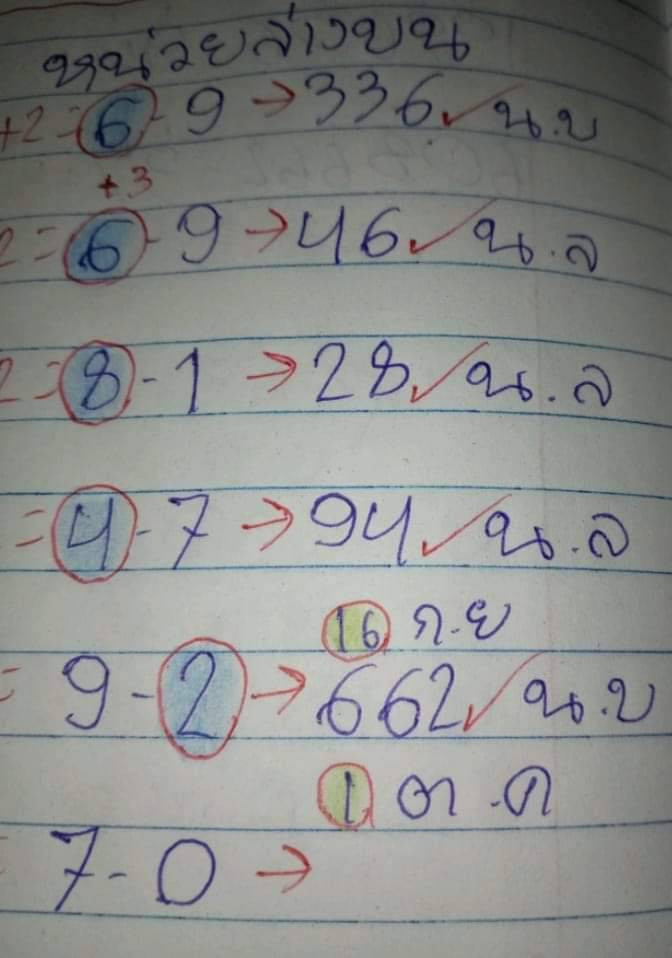 หน่วยล่างบน
+2=6-9→336✓น.บ
+3
2=6-9→46✓น.ล
2=8-1→28✓น.ล
=4-7→94✓น.ล
16 ก.ย
=9-2→662✓น.บ
1 ต.ค
7-0→